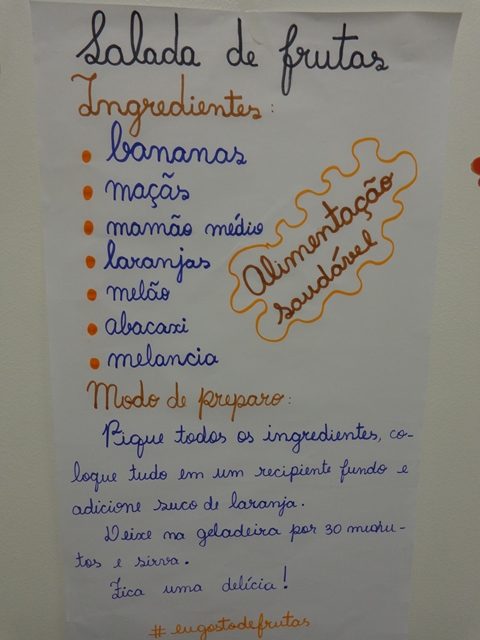 Salada de frutas
Ingredientes:
• bananas
• maçãs
• mamão médio
• laranjas
• melão
• abacaxi
• melancia
Alimentação
saudável
Modo de preparo:
Pique todos os ingredientes, co-
loque tudo em um recipiente fundo e
adicione suco de laranja.
Deixe na geladeira por 30 minu-
tos e sirva.
Fica uma delícia!
#eugostodefrutas